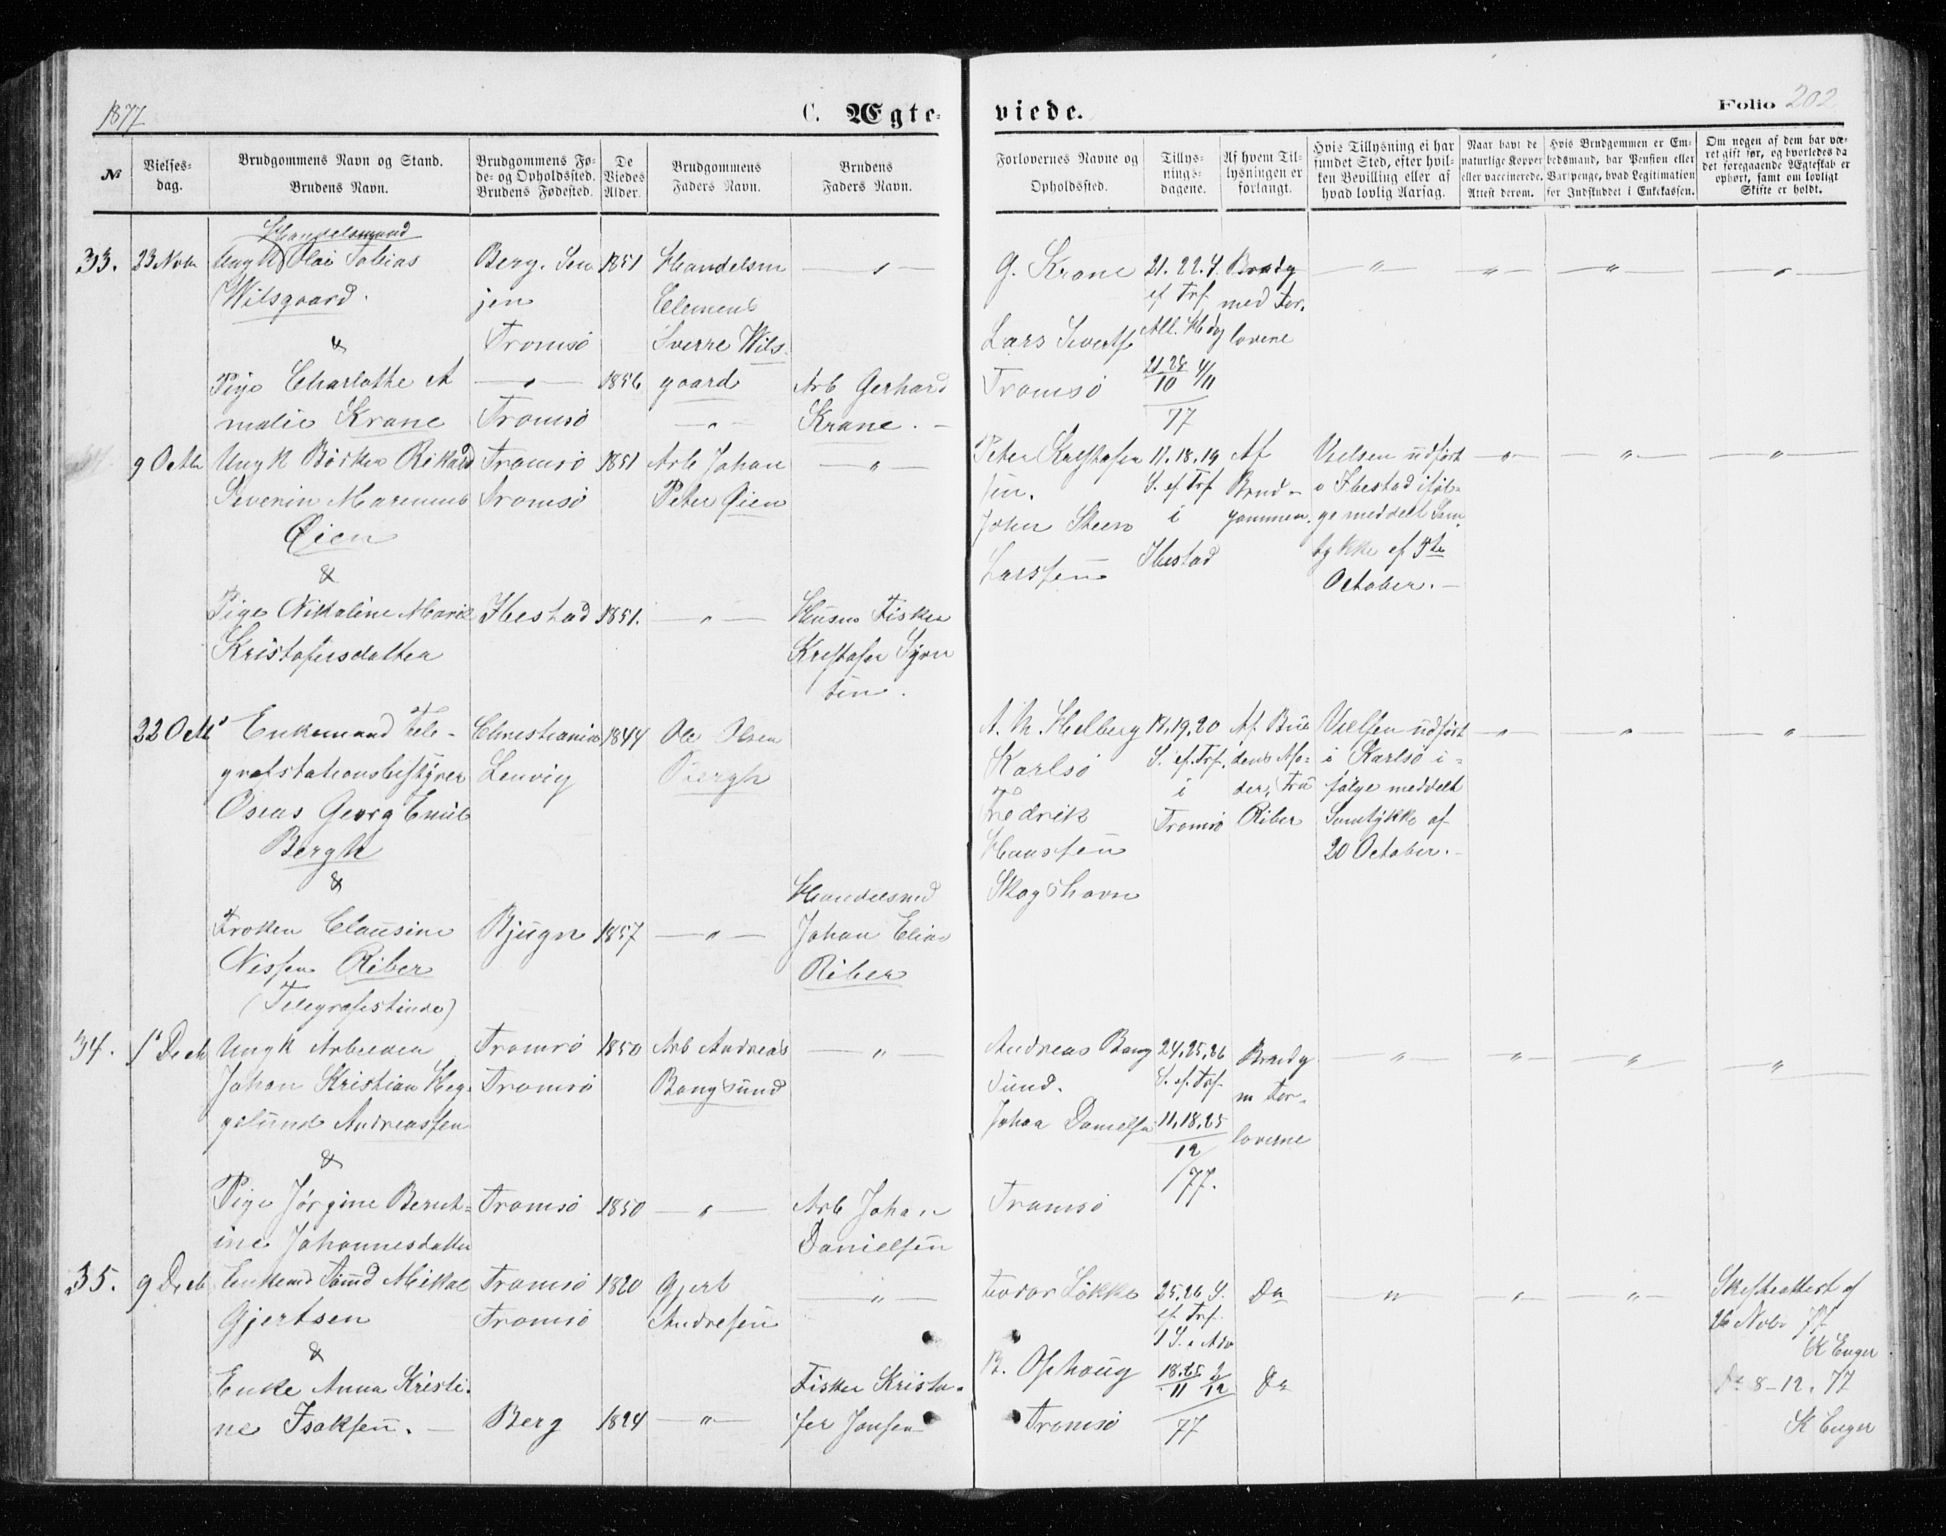 1877
C. Ægte-
viede.
Folio 202
№
Vielses-
dag.
Brudgommens Navn og Stand.
Brudens Navn.
Brudgommens Fø-
de- og Opholdssted.
Brudens Fødested.
De
Viedes
Alder.
Brudgommens
Faders Navn.
Brudens
Faders Navn.
Forlovernes Navne og
Opholdssted.
Tillys-
nings-
dagene.
Af hvem Til-
lysningen er
forlangt.
Hvis Tillysning ei har
fundet Sted, efter hvil-
ken Bevilling eller af
hvad lovlig Aarsag.
Naar havt de
naturlige Kopper
eller vaccinerede.
Attest derom.
Hvis Brudgommen er Em-
bedsmand, har Pension eller
Vartpenge, hvad Legitimation
for Indskuddet i Enkekassen.
Om nogen af dem har væ-
ret gift før, og hvorledes da
det foregaaende Ægteskab er
ophørt, samt om lovligt
Skifte er holdt.
33.
23 Novbr
Handelsmand
Ungk Olai Tobias
Wilsgaard.
&
Pige Charlotte A
malie Krane
Berg. Sen
jen
Tromsø
— " —
Tromsø
1851
1856
Handelsm
Clemens
Sverre Wils-
gaard
— " —
— " —
Arb Gerhard
Krane. —
G. Krane
Lars Sivertss
Tromsø
21. 22. S.
ef Trf.
21 28/10 4/11
77
Brudg
med For-
loverne
— " —
— " —
— " —
— " —
9 Octbr
Ungk Rikard
Severin Marenius
Øien
&
Pige Nikoline Marie
Kristofersdatter
Tromsø
Tromsø
Ibestad
1851
1851.
Arb Johan
Peter Øien
— " —
— " —
Husm Fisker
Kristofer Syver
sen.
Peter Kristofer
sen.
John Steen
Larssen
17. 18. 19
S. ef. Trf
i
Ibestad
Af
Brud-
gommen.
Vielsen udført
i Ibestad iføl-
ge meddelt Sam
tykke af 5te
October. —
— " —
— " —
— " —
22 Octbr
Enkemand Tele-
grafstationsbestyrer
Oseas Georg Emil
Bergh
&
Frøken Clausine
Nissen Riber
(Telegrafistinde)
Christiania
Lenvig
Bjugn
1844
1857
Ole Olsen
Bergh
— " —
Handelsmd
Johan Elias
Riber
A. M. Helberg
Karlsø
Fredrik
Hanssen
Skogshavn
17. 19. 20
S. ef. Trf.
i
Tromsø
Af Bru
dens Mo-
der, Fru
Riber
Vielsen udført
i Karlsø i-
følge meddelt
Samtykke af
20 October. —
— " —
— " —
— " —
34.
1 Decbr
Ungk Arbeider
Johan Kristian Heg-
gelund Andreassen
&
Pige Jørgine Bernt-
ine Johannesdatter
Tromsø
Tromsø
Tromsø
1850
1850
Arb Andreas
Bangsund
— " —
— " —
Arb Johan
Danielsen
Andreas Bang
sund.
Johan Danielsen
Tromsø
24. 25. 26
S. ef. Trf.
11. 18. 25
12
/77.
Brudg
m For-
loverne
— " —
— " —
— " —
— " —
35.
9 Decbr
Enkemd Mikal
Gjertsen
&
Enke Anna Kristi-
ne Isaksen. —
Tromsø
Tromsø
Berg
1820
1824
Gjert
Andresen
— " —
— " —
Fisker Kristo-
fer Jonsen
Løkke
B. Ophoug
Tromsø
25. 26 S.
ef. Trf.
18. 25/11 2/12
77
Do
Do
— " —
— " —
— " —
Skifteattest af
26 Novbr 77
K Enger
Do 8-12. 77
K Enger